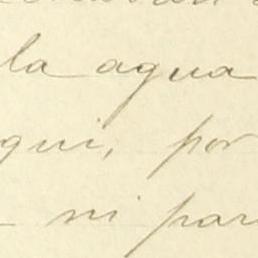 la agua
qui, por
ni par